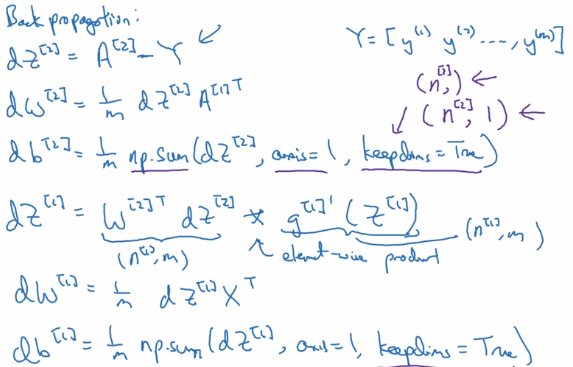 Back propagation:
dZ^[2] = A^[2] - Y ↙
Y = [y^(1) y^(2) ...., y^(m)]
dW^[2] = 1/m dZ^[2] A^[1]T
(n^[2],) ←
(n^[2], 1) ←
db^[2] = 1/m np.sum(dZ^[2], axis=1, keepdims=True)
dZ^[1] = W^[2]T dZ^[2] * g^[1]' (Z^[1])
(n^[1], m)
element-wise product
(n^[1], m)
dW^[1] = 1/m dZ^[1] X^T
db^[1] = 1/m np.sum(dZ^[1], axis=1, keepdims=True)